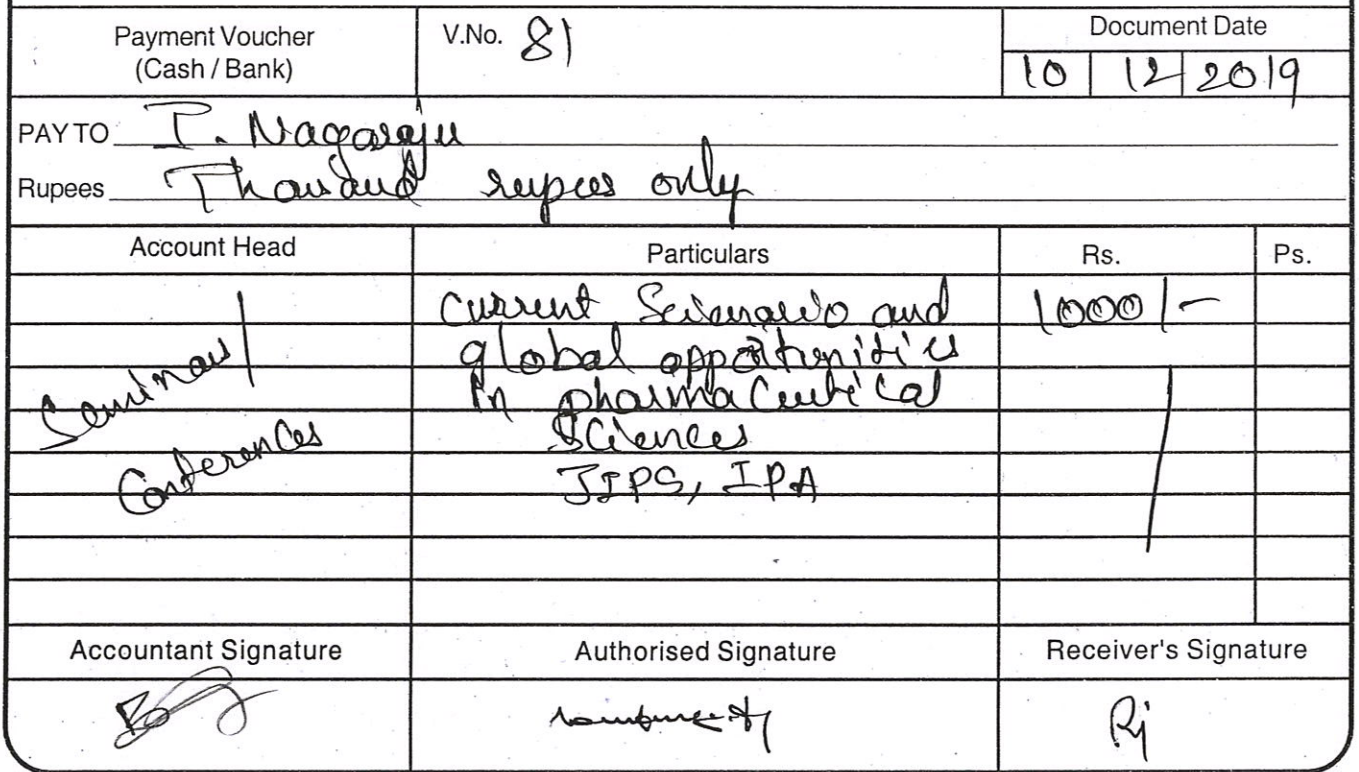 Payment Voucher
(Cash / Bank)
V.No. 81
Document Date
10 | 12 | 2019
PAY TO I. Nagaraju
Rupees Thousand rupees only
Account Head
Particulars
Rs.
Ps.
Seminars/
Conferences
Current Scienario and
global opportunities
in pharmaceutical
Sciences
JIPS, IPA
1000/-
Accountant Signature
Authorised Signature
Receiver's Signature